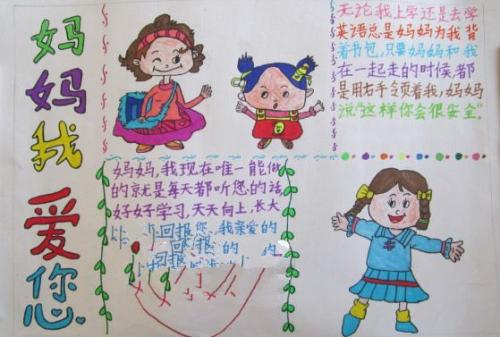 妈妈我爱您
无论我上学还是去学
英语总是妈妈为我背
着书包,只要妈妈和我
在一起走的时候,都
是用右手领着我,妈妈
说“这样你会很安全”.
妈妈,我现在唯一能做
的就是每天都听您的话
好好学习,天天向上,长大
回报您,我亲爱的
回报 的